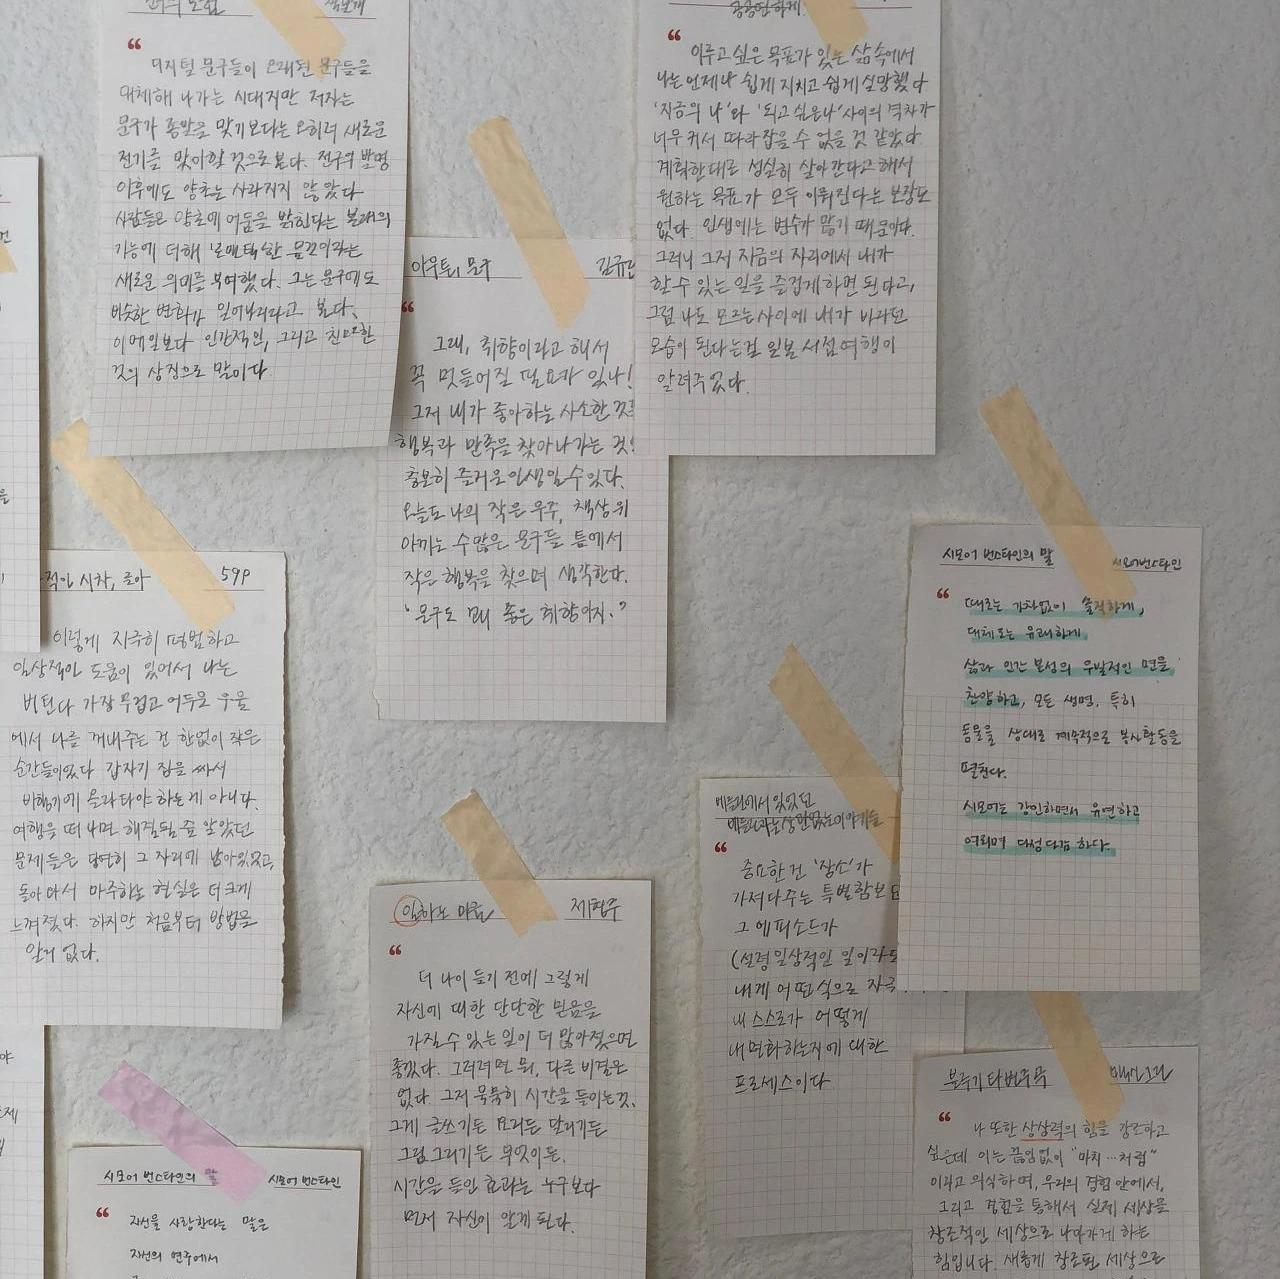 “
디지털 문구들이 오래된 문구들을
대체해 나가는 시대지만 저자는
문구가 종말을 맞기보다는 오히려 새로운
전기를 맞이할 것으로 본다. 전구의 발명
이후에도 양초는 사라지지 않았다
사람들은 양초에 어둠을 밝힌다는 본래의
기능에 더해 '로맨틱'한 물건이라는
새로운 의미를 부여했다. 그는 문구에도
비슷한 변화가 일어나리라고 본다.
이메일보다 인간적인, 그리고
것의 상징으로 말이다.
공공연하게.
“
이루고 싶은 목표가 있는 삶 속에서
나는 언제나 쉽게 지치고 쉽게 실망했다
'지금의 나'와 '되고 싶은 나' 사이의 격차가
너무 커서 따라잡을 수 없을 것 같았다
계획한대로 성실히 살아간다고 해서
원하는 목표가 모두 이뤄진다는 보장도
없다. 인생에는 변수가 많기 때문이다.
그러니 그저 지금의 자리에서 내가
할 수 있는 일을 즐겁게 하면 된다고,
그럼 나도 모르는 사이에 내가 바라던
모습이 된다는 걸 일본 서점 여행이
알려주었다.
아무튼, 문구 김규
“
그래, 취향이라고 해서
꼭 멋들어질 필요가 있나!
그저 내가 좋아하는 사소한
행복과 만족을 찾아나가는 것!
충분히 즐거운 인생일 수 있다.
오늘도 나의 작은 우주, 책상 위
아끼는 수많은 문구들 틈에서
작은 행복을 찾으며 생각한다.
'문구도 꽤 좋은 취향이지.'
적인 시차, 룬아 59P
이렇게 지극히 평범하고
일상적인 도움이 있어서 나는
버틴다 가장 무겁고 어두운 우울
에서 나를 꺼내주는 건 한없이 작은
순간들이었다 갑자기 짐을 싸서
비행기에 올라타야 하는 게 아니다.
여행을 떠나면 해결될 줄 알았던
문제들은 당연히 그 자리에 남아있었고,
돌아와서 마주하는 현실은 더 크게
느껴졌다. 하지만 처음부터 방법을
알리 없다.
시모어 번스타인의 말 시모어번스타인
“
때로는 가차없이 솔직하게,
대체로는 유쾌하게
삶과 인간 본성의 우발적인 면을
찬양하고, 모든 생명, 특히
동물을 상대로 계속적으로 봉사활동을
펼친다.
시모어는 강인하면서 유연하고
여리며 다정다감 하다.
베를린에서 있었던
베를린과는 상관없는 이야기들
“
중요한 건 '장소'가
가져다주는 특별함보다
그 에피소드가
(설령 일상적인 일이라도
내게 어떤 식으로
내 스스로가 어떻게
내면화하는지에 대한
프로세스이다
일하는 마음 제현주
“
더 나이 들기 전에 그렇게
자신에 대한 단단한 믿음을
가질 수 있는 일이 더 많아졌으면
좋겠다. 그러려면 뭐, 다른 비결은
없다. 그저 묵묵히 시간을 들이는 것.
그게 글쓰기든 요리든 달리기든
그림 그리기든 무엇이든.
시간을 들인 효과는 누구보다
먼저 자신이 알게 된다.
시모어 번스타인의 말 시모어 번스타인
“
자신을 사랑한다는 말은
자신의 연주에서
블루기 다버무
“
나 또한 상상력의 힘을 강조하고
싶은데 이는 끊임없이 "마치…처럼"
이라고 의식하며, 우리의 경험 안에서,
그리고 경험을 통해서 실제 세상을
창조적인 세상으로 나아가게 하는
힘입니다. 새롭게 창조된 세상으로